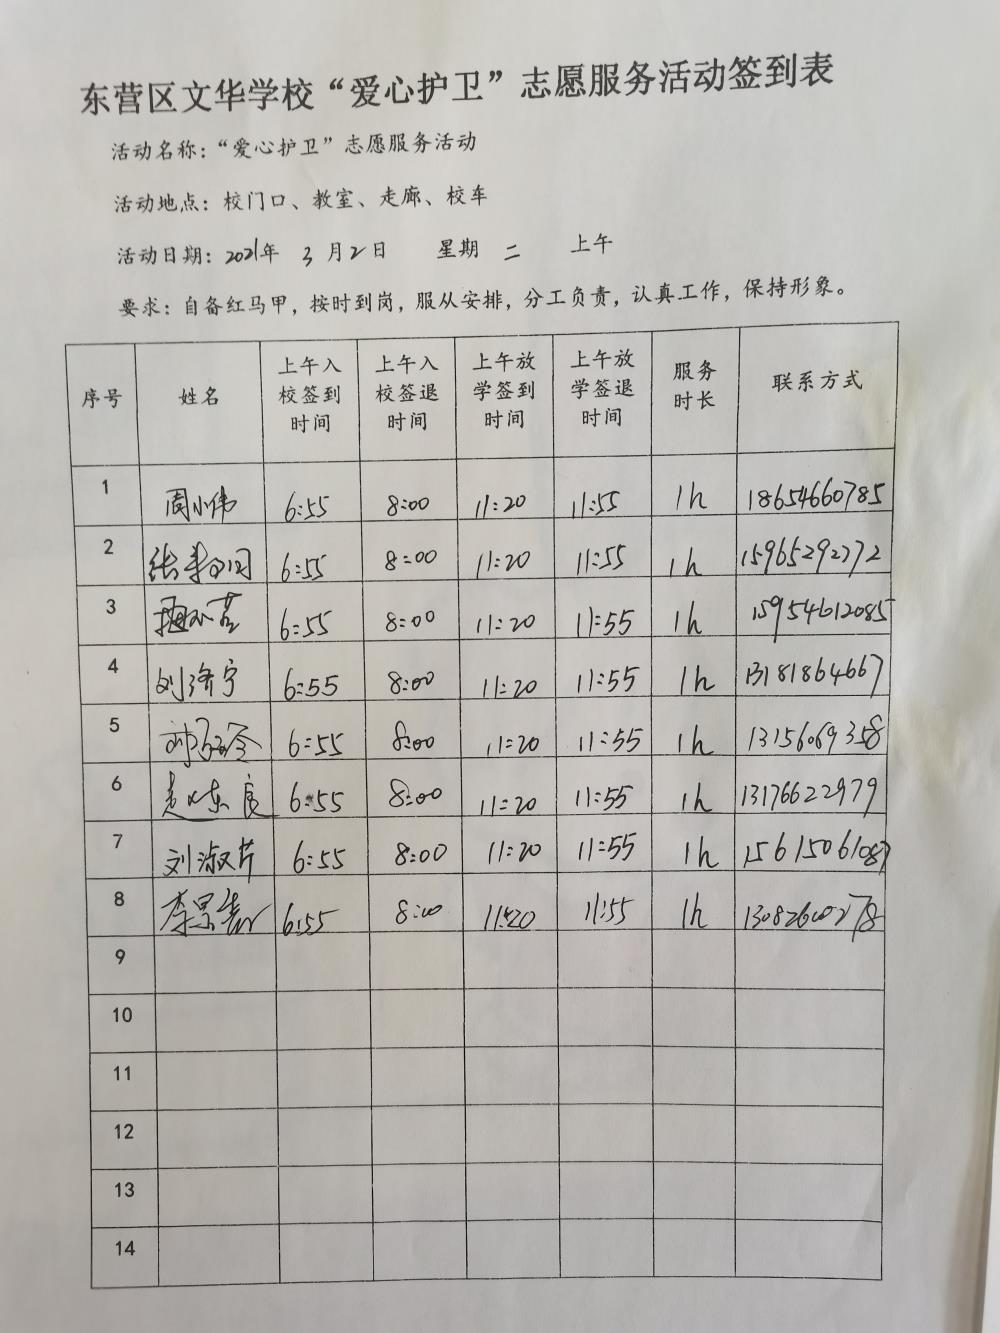 东营区文华学校“爱心护卫”志愿服务活动签到表
活动名称：“爱心护卫”志愿服务活动
活动地点：校门口、教室、走廊、校车
活动日期：2021年 3 月 2 日 星期 二 上午
要求：自备红马甲，按时到岗，服从安排，分工负责，认真工作，保持形象。
序号 姓名 上午入校签到时间 上午入校签退时间 上午放学签到时间 上午放学签退时间 服务时长 联系方式
1 周小伟 6:55 8:00 11:20 11:55 1h 18654660785
2 张 6:55 8:00 11:20 11:55 1h 15965292772
3 6:55 8:00 11:20 11:55 1h 15954612085
4 刘济宁 6:55 8:00 11:20 11:55 1h 13181864667
5 刘 6:55 8:00 11:20 11:55 1h 13156069358
6 6:55 8:00 11:20 11:55 1h 13176622979
7 刘淑芹 6:55 8:00 11:20 11:55 1h 15615061087
8 李景 6:55 8:00 11:20 11:55 1h 13082600278
9
10
11
12
13
14